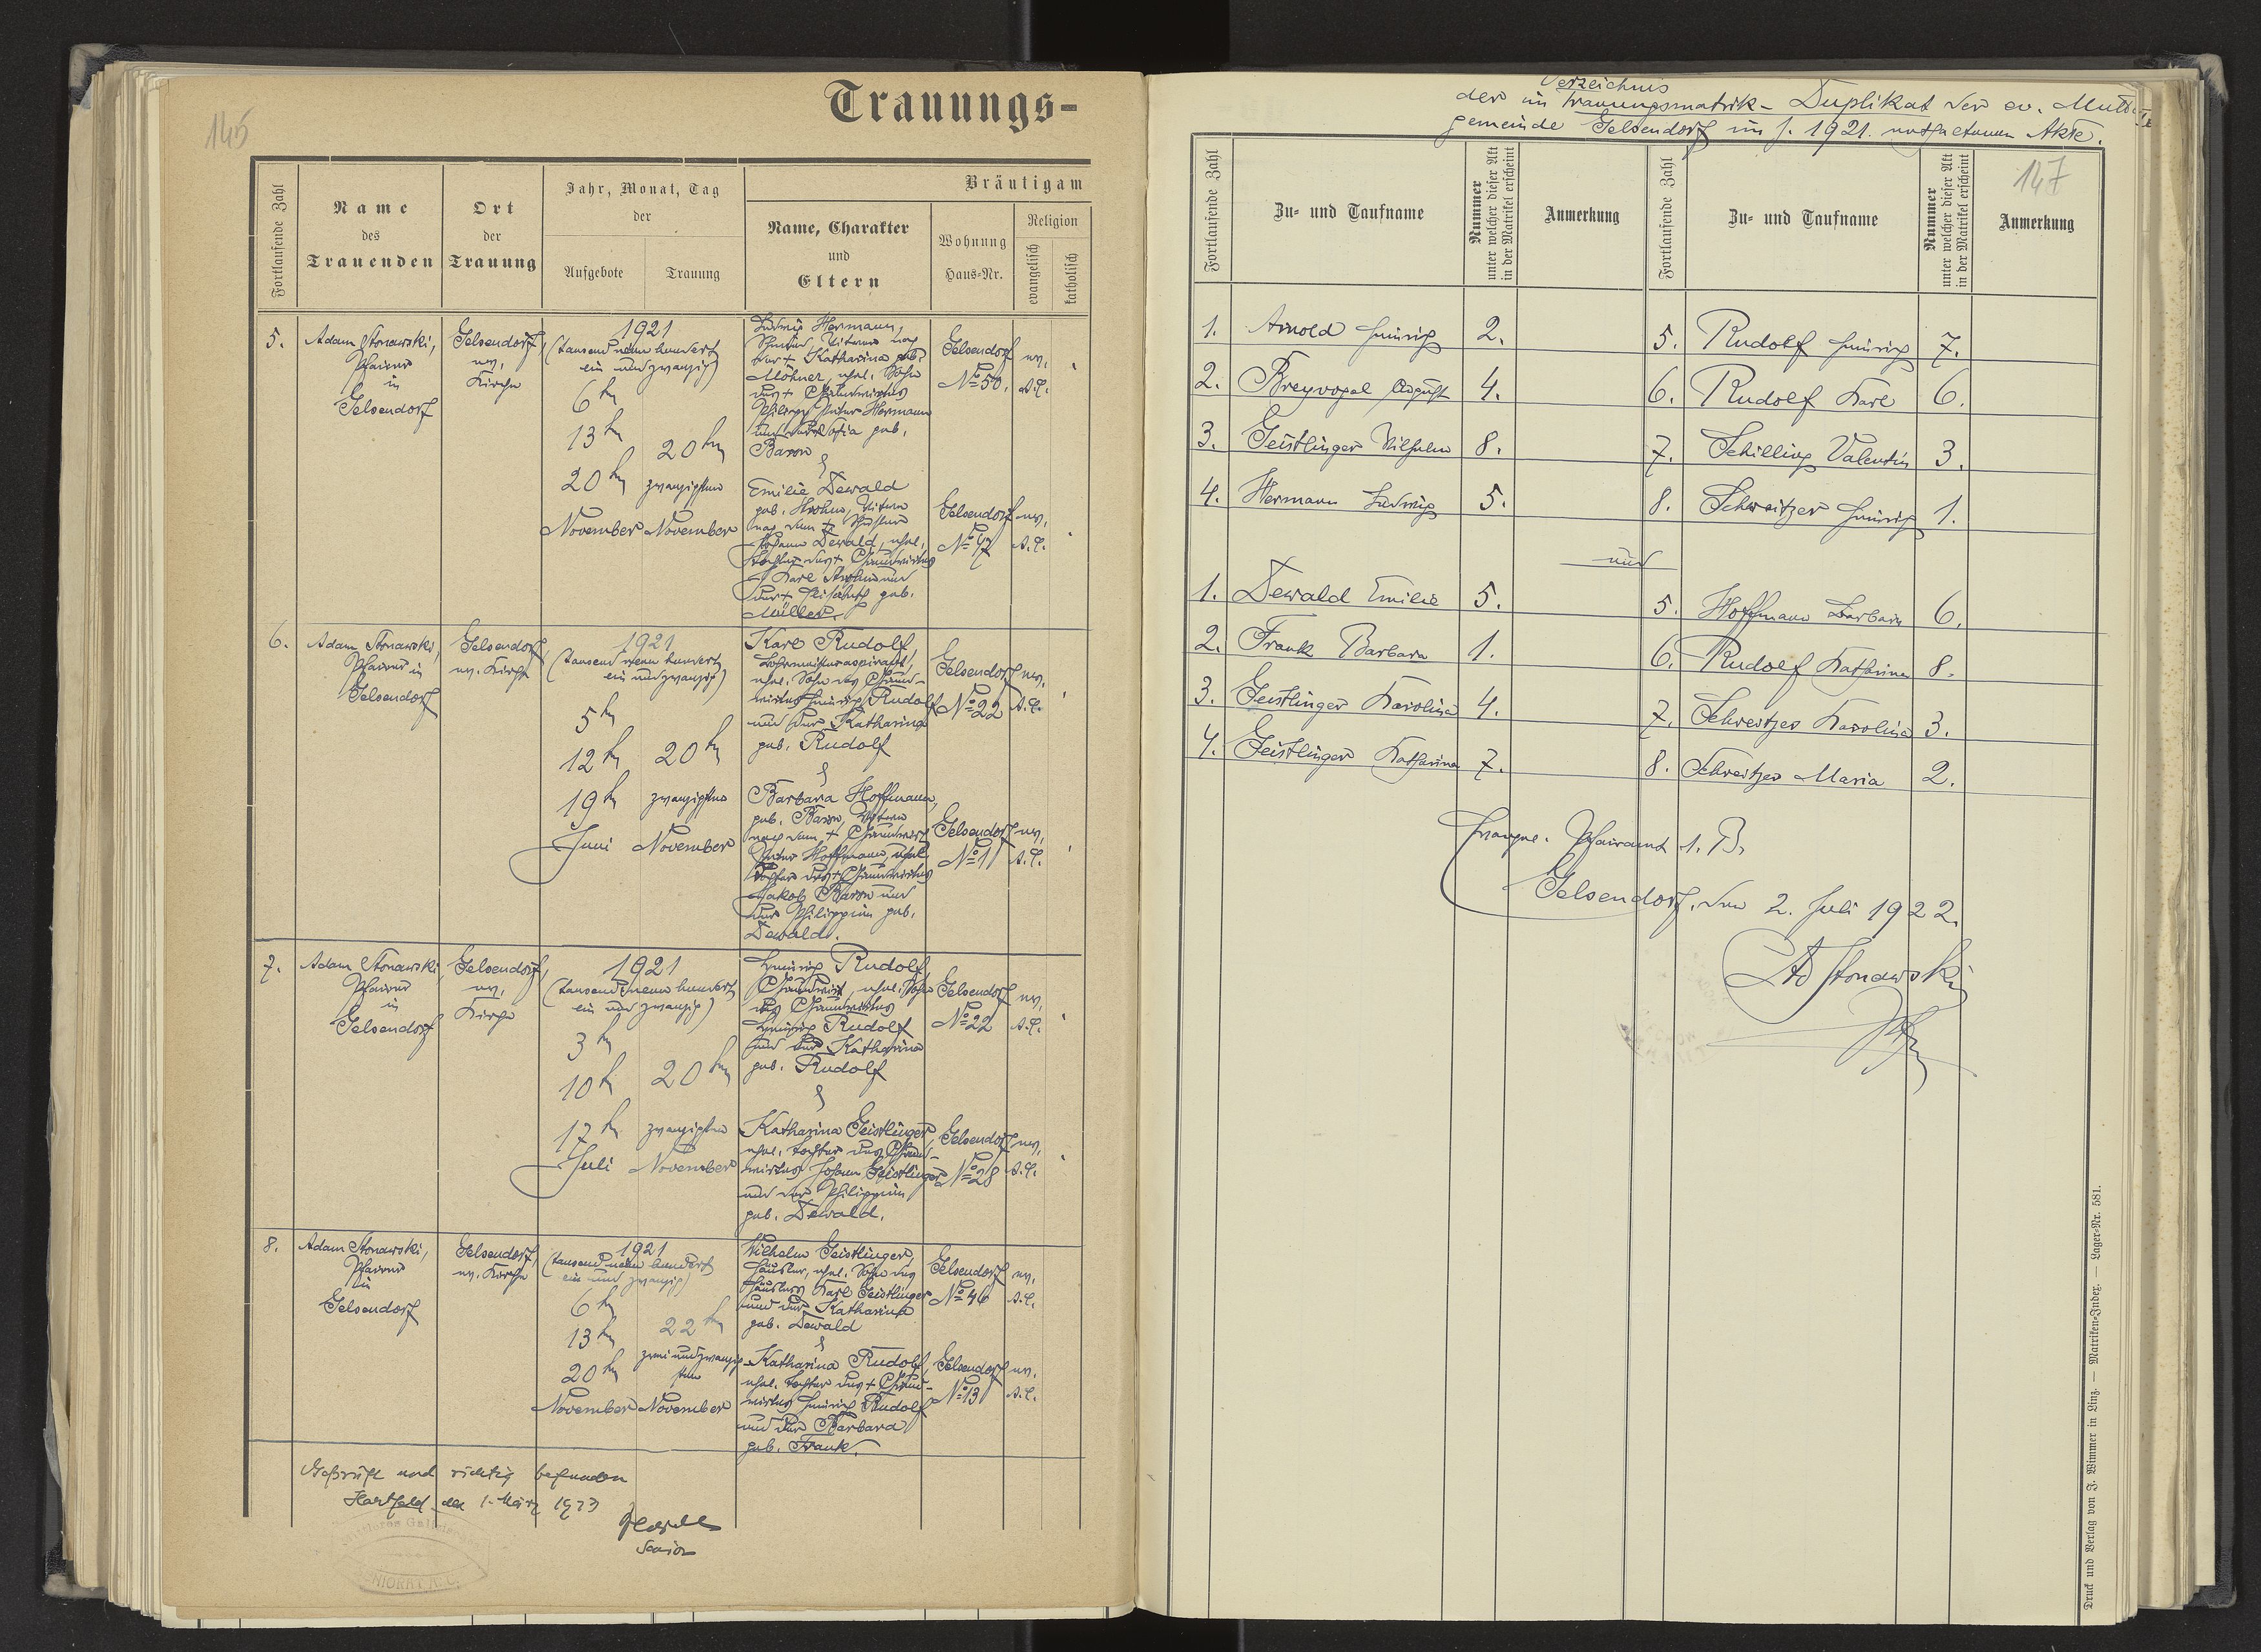 145
Trauungs-
Fortlaufende Zahl
Name
des
Trauenden
Ort
der
Trauung
Jahr, Monat, Tag
der
Aufgebote
Trauung
Bräutigam
Name, Charakter
und
Eltern
Wohnung
Haus-Nr.
Religion
evangelisch
katholisch
5.
Adam Stonawski,
Pfarrer
in
Gelsendorf
Gelsendorf,
ev.
Kirche
1921
(tausend neun hundert
ein und zwanzig)
6ten
13ten
20ten
November
20ten
zwanzigsten
November
Ludwig Hermann,
Witwer nach
der + Katharina geb.
Möhner, ehel. Sohn
des + Grundwirtes
Philipp Peter Hermann
und der Sofia geb.
Baron
&
Emilie Dewald
geb. Krohn, Witwe
nach dem +
Johann Dewald, ehel.
Tochter des + Grundwirtes
Karl Krohn und
der + Elisabeth geb.
Müller.
Gelsendorf
№ 50.
ev.
A.C.
Gelsendorf
№ 47
ev.
A.C.
6.
Adam Stonawski,
Pfarrer in
Gelsendorf
Gelsendorf,
ev. Kirche
1921
(tausend neun hundert
ein und zwanzig)
5ten
12ten
19ten
Juni
20ten
zwanzigsten
November
Karl Rudolf,
ehel. Sohn des Grund-
wirtes Heinrich Rudolf
und der Katharina
geb. Rudolf
&
Barbara Hoffmann,
geb. Baron, Witwe
nach dem + Grundwirt
Peter Hoffmann, ehel.
Tochter des + Grundwirtes
Jakob Baron und
der Philippine geb.
Dewald.
Gelsendorf
№ 22
ev.
A.C.
Gelsendorf
№ 11
ev.
A.C.
7.
Adam Stonawski,
Pfarrer
in
Gelsendorf
Gelsendorf,
ev.
Kirche
1921
(tausend neun hundert
ein und zwanzig)
3ten
10ten
17ten
Juli
20ten
zwanzigsten
November
Heinrich Rudolf
Grundwirt, ehel. Sohn
des Grundwirtes
Heinrich Rudolf
und der Katharina
geb. Rudolf
&
Katharina Geistlinger,
ehel. Tochter des Grund-
wirtes Johann Geistlinger
und der Philippine
geb. Dewald.
Gelsendorf
№ 22
ev.
A.C.
Gelsendorf
№ 28
ev.
A.C.
8.
Adam Stonawski,
Pfarrer
in
Gelsendorf
Gelsendorf,
ev. Kirche
1921
(tausend neun hundert
ein und zwanzig)
6ten
13ten
20ten
November
22ten
zwei und zwanzig-
sten
November
Wilhelm Geistlinger,
Häusler, ehel. Sohn des
Häuslers Karl Geistlinger
und der Katharina
geb. Dewald
&
Katharina Rudolf,
ehel. Tochter des + Grund-
wirtes Heinrich Rudolf
und der Barbara
geb. Frank.
Gelsendorf
№ 46
ev.
A.C.
Gelsendorf
№ 13
ev.
A.C.
Geprüft und richtig befunden
Hartfeld den 1. März 1923
Senior
SENIORAT A.C.
Verzeichnis
der im Trauungsmatrik-Duplikat der ev. Mutter-
gemeinde Gelsendorf im J. 1921. enthaltenen Akte.
147
Fortlaufende Zahl
Zu- und Taufname
Nummer
unter welcher dieser Akt
in der Matrikel erscheint
Anmerkung
Fortlaufende Zahl
Zu- und Taufname
Nummer
unter welcher dieser Akt
in der Matrikel erscheint
Anmerkung
1. Arnold Heinrich 2.
5. Rudolf Heinrich 7.
2. Breyvogel August 4.
6. Rudolf Karl 6.
3. Geistlinger Wilhelm 8.
7. Schilling Valentin 3.
4. Hermann Ludwig 5.
8. Schweitzer Heinrich 1.
und
1. Dewald Emilie 5.
5. Hoffmann Barbara 6.
2. Frank Barbara 1.
6. Rudolf Katharina 8.
3. Geistlinger Karolina 4.
7. Schweitzer Karolina 3.
4. Geistlinger Katharina 7.
8. Schweitzer Maria 2.
Evangel. Pfarramt A. B.
Gelsendorf, den 2. Juli 1922.
Ad Stonawski
Druck und Verlag von J. Wimmer in Linz. — Matriken-Index. — Lager-Nr. 581.